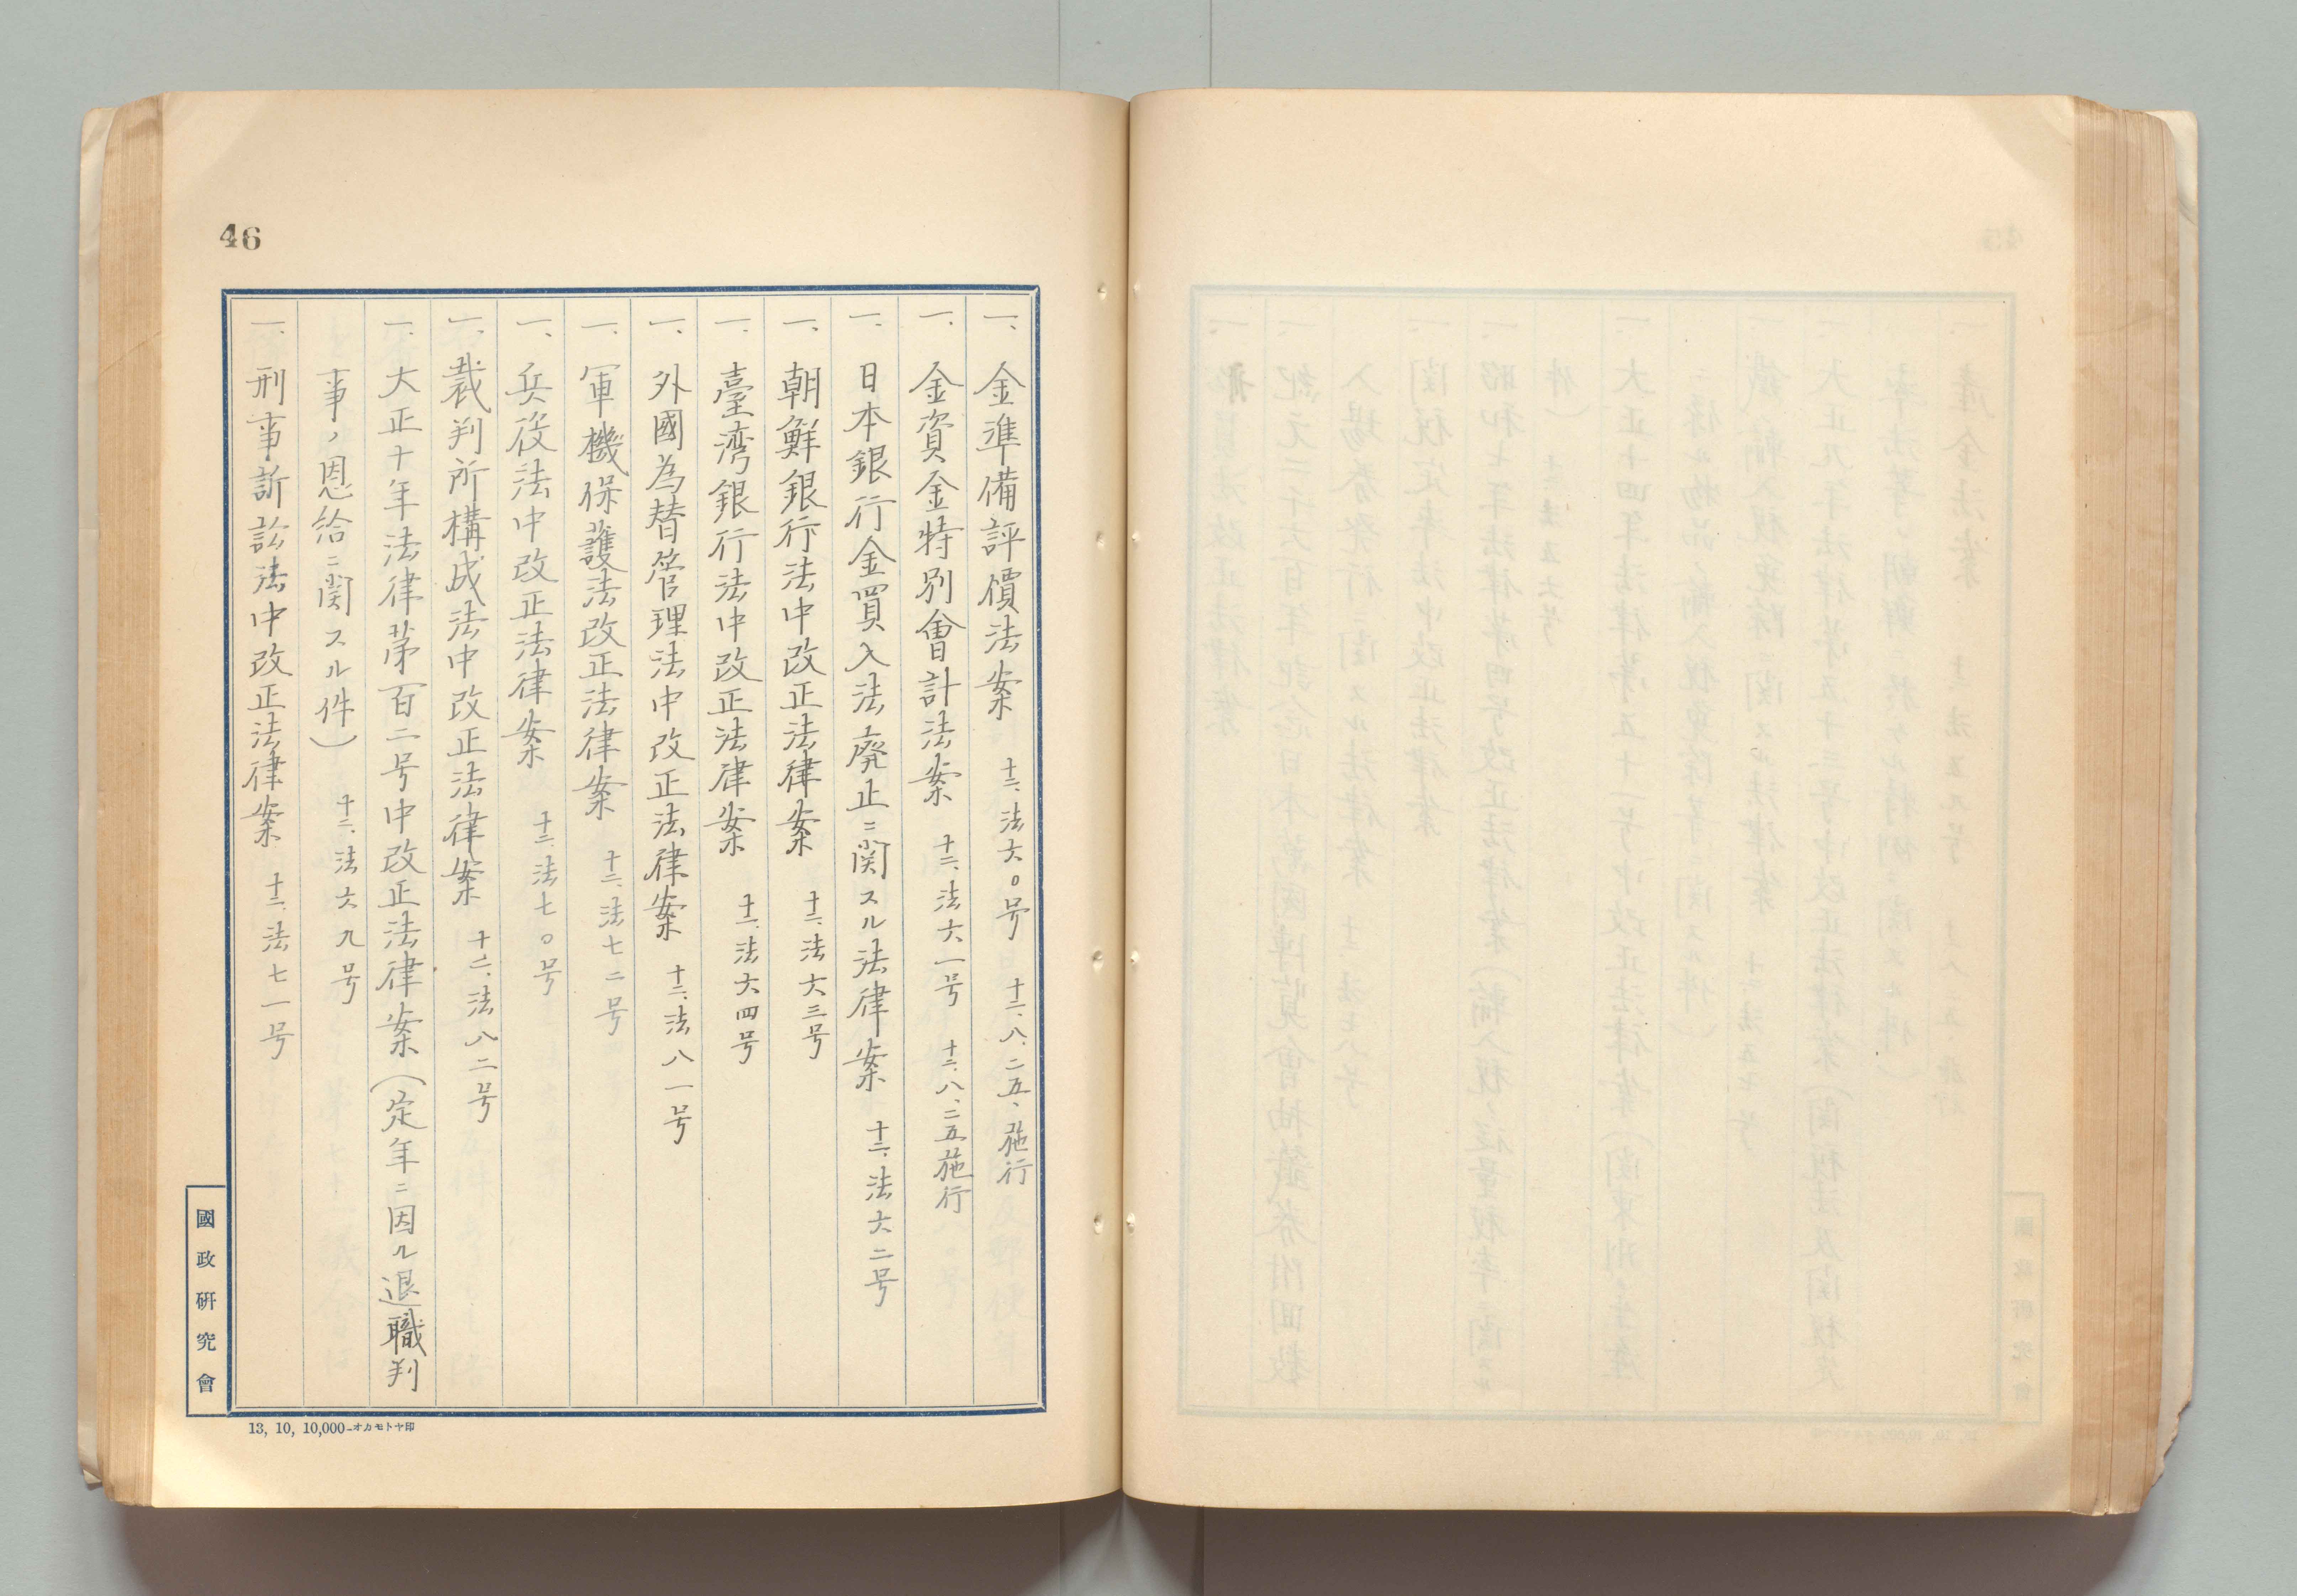 46
一、金準備評價法案　十二、法六〇号　十二、八、二五、施行
一、金資金特別會計法案　十二、法六一号　十二、八、二五施行
一、日本銀行金買入法廃止ニ関スル法律案　十二、法六二号
一、朝鮮銀行法中改正法律案　十二、法六三号
一、臺湾銀行法中改正法律案　十二、法六四号
一、外國為替管理法中改正法律案　十二、法八一号
一、軍機保護法改正法律案　十二、法七二号
一、兵役法中改正法律案　十二、法七〇号
一、裁判所構成法中改正法律案　十二、法八二号
一、大正十年法律第百二号中改正法律案（定年ニ因ル退職判
事ノ恩給ニ関スル件）　十二、法六九号
一、刑事訴訟法中改正法律案　十二、法七一号
國政研究會
13, 10, 10,000—オカモトヤ印